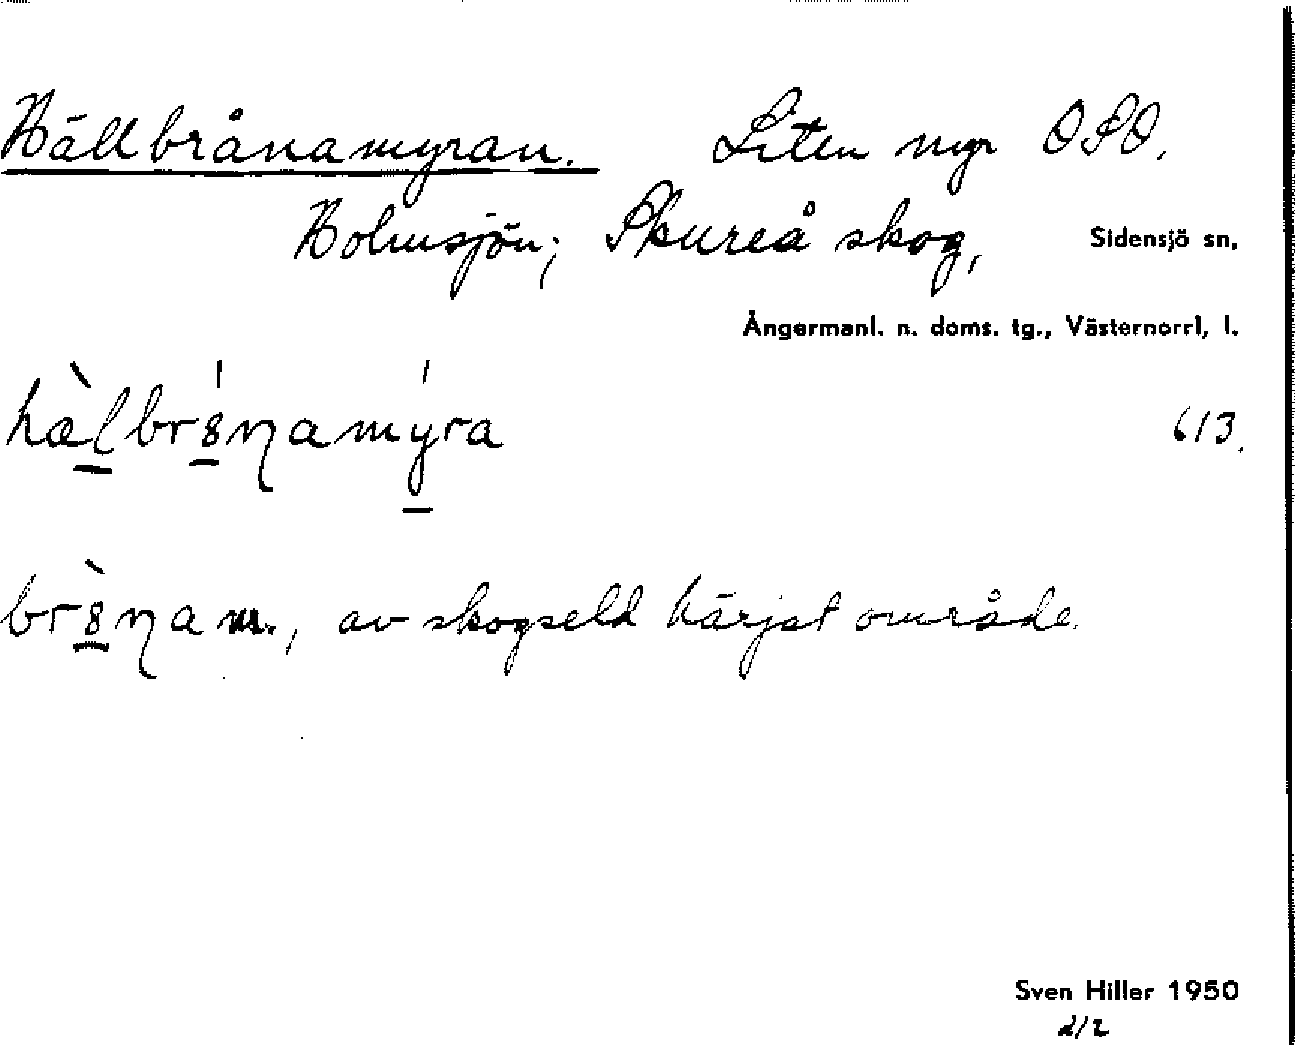 Hällbrånamyran. Liten myr OSO.
Holmsjön; Skureå skog, Sidensjö sn.
Ångermanl. n. doms. tg., Västernorrl. l.
hæ̀lbr8́ŋamýra 613.
br8̀ŋa m., av skogseld härjat område.
Sven Hiller 1950
2/2